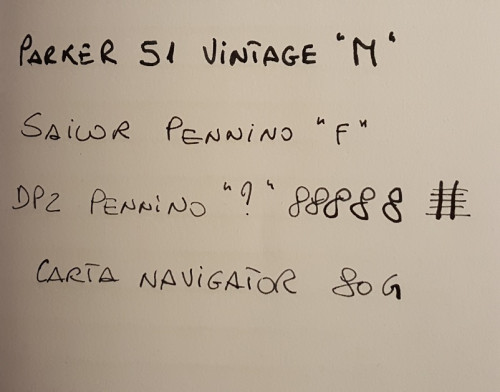 PARKER 51 VINTAGE "M"
SAILOR PENNINO "F"
DPZ PENNINO "?" 88888 #
CARTA NAVIGATOR 80G